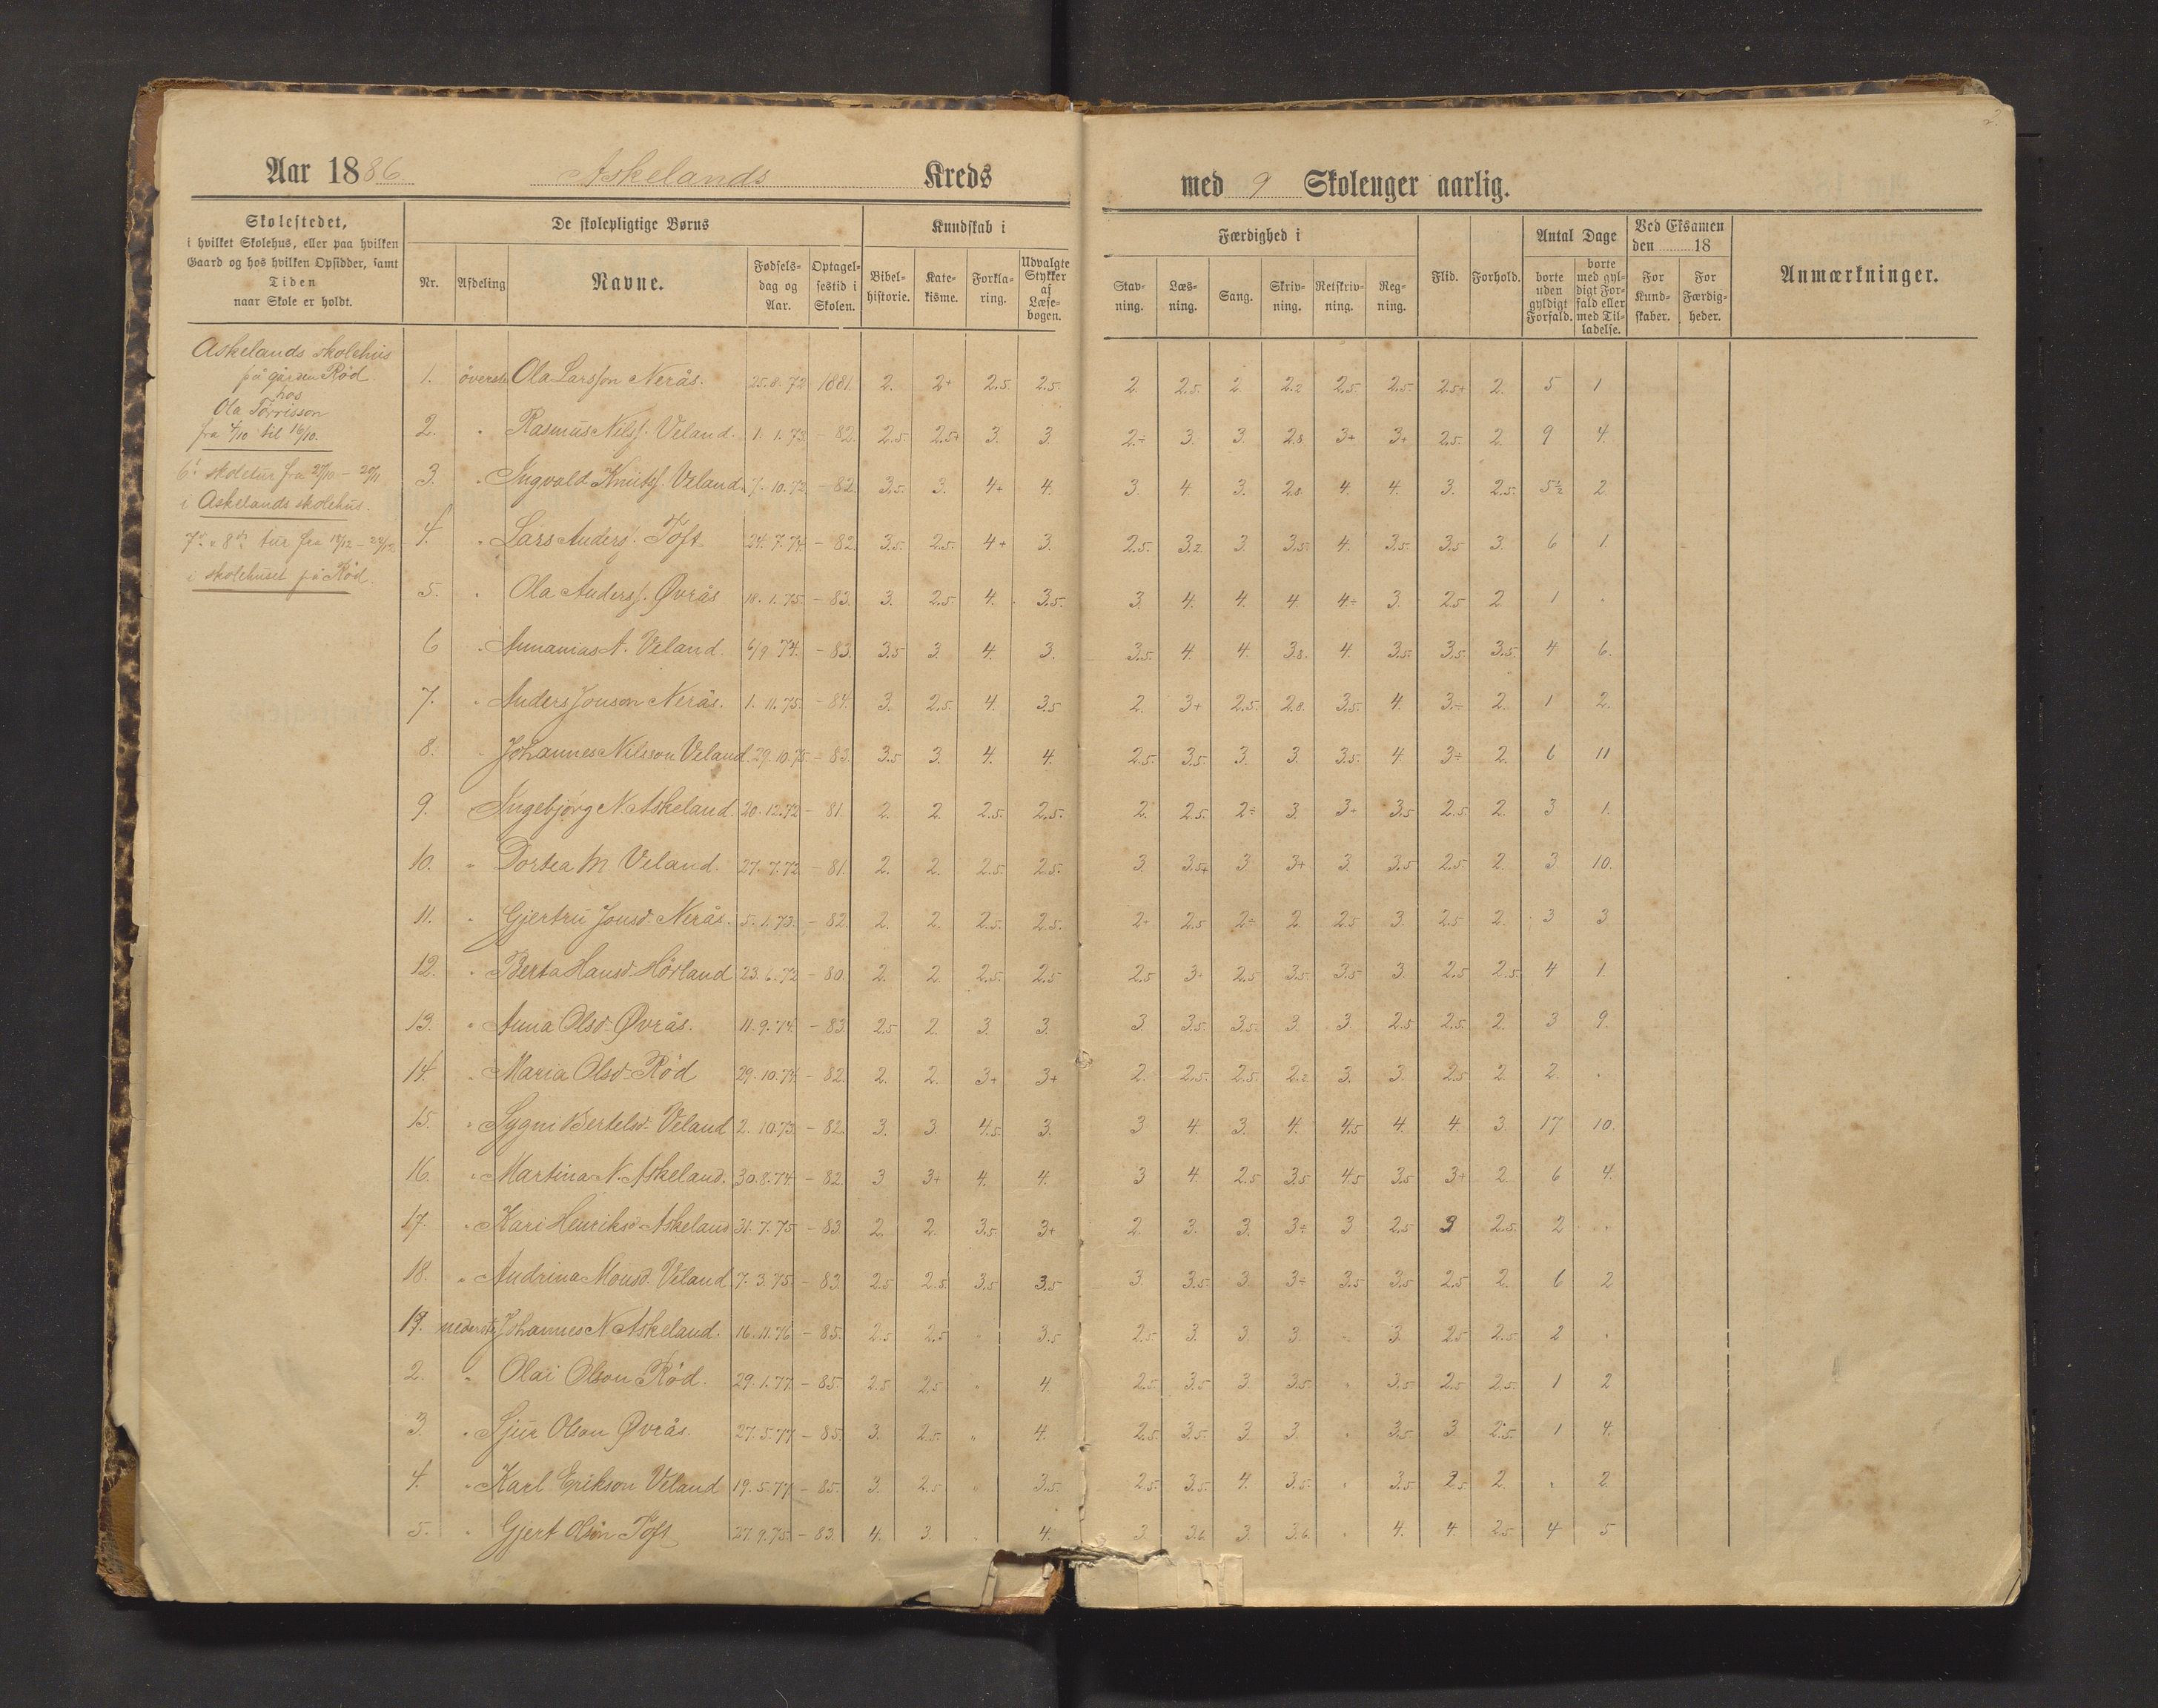 2.
Aar 1886 Askelands Kreds med 9 Skoleuger aarlig.
Skolestedet, i hvilket Skolehus, eller paa hvilken Gaard og hos hvilken Opsidder, samt Tiden naar Skole er holdt.
De skolepligtige Børns
Nr. Afdeling Navne. Fødselsdag og Aar. Optagelsestid i Skolen.
Kundskab i
Bibelhistorie. Katekisme. Forklaring. Udvalgte Stykker af Læsebogen.
Færdighed i
Stavning. Læsning. Sang. Skrivning. Retskrivning. Regning.
Flid. Forhold.
Antal Dage
borte uden gyldigt Forfald. borte med gyldigt Forfald eller med Tilladelse.
Ved Eksamen den 18
For Kundskaber. For Færdigheder.
Anmærkninger.
Askelands skolehus
på gården Rød
hos
Ola Tørrisson
fra 4/10 til 16/10.
i Askelands skolehus.
i skolehuset på Rød
1. øverste Ola Larsson Nerås. 25.8.72 1881. 2. 2+ 2.5. 2.5. 2. 2.5. 2. 2.2 2.5. 2.5. 2.5+ 2. 5 1
2. " Rasmus Nilss. Veland. 1.1.73. - 82. 2.5. 2.5+ 3. 3. 2.÷ 3. 3. 2.8 3+ 3+ 2.5. 2. 9 4.
3. " Ingvald Knuts. Veland. 7.10.72. - 82. 3.5. 3. 4+ 4. 3. 4. 3. 2.8. 4. 4. 3. 2.5. 5½ 2.
4. " Lars Anders. Toft 24.7.74 - 82. 3.5. 2.5. 4+ 3. 2.5. 3.2 3. 3.5. 4. 3.5. 3.5 3. 6 1.
5. " Ola Anderss. Øvrås 18.1.75. - 83. 3. 2.5. 4. 3.5. 3. 4. 4. 4. 4÷ 3. 2.5 2 1 "
6 " Annanias A. Veland. 6/9 74. - 83. 3.5 3. 4. 3. 3.5. 4. 4. 3.8. 4. 3.5. 3.5 3.5. 4 6.
7. " Anders Jonson Nerås. 1.11.75. - 84. 3. 2.5. 4. 3.5 2. 3+ 2.5. 2.8. 3.5. 4. 3÷ 2. 1 2.
8. " Johannes Nilsson Veland. 29.10.75. - 83. 3.5 3. 4. 4. 2.5. 3.5. 3. 3. 3.5. 4. 3÷ 2. 6 11
9. " Ingebjørg N. Askeland. 20.12.72 - 81. 2. 2. 2.5. 2.5. 2. 2.5. 2÷ 3. 3+ 3.5 2.5. 2. 3 1.
10. " Dortea M Veland. 27.7.72 - 81. 2. 2. 2.5. 2.5. 3 3.5+ 3 3+ 3. 3.5 2.5. 2. 3. 10.
11. " Gjertru Jonsd. Nerås. 5.1.73. - 82. 2. 2. 2.5. 2.5. 2÷ 2.5 2÷ 2 2.5 3. 2.5 2. 3 3
12. " Berta Hansd. Hörland 23.6.72 - 80. 2. 2 2.5. 2.5 2.5 3+ 2.5 3.5. 3.5 3. 2.5 2.5 4 1.
13. " Anna Olsd. Øvrås. 11.9.74. - 83. 2.5 2. 3. 3. 3. 3.5. 3.5. 3. 3. 2.5 2.5. 2. 3 9.
14. " Maria Olsd. Rød 29.10.74. - 82. 2. 2. 3+ 3+ 2. 2.5. 2.5. 2.2 3. 3. 2.5 2. 2. "
15. " Sygni Bertelsd. Veland 2.10.73. - 82. 3. 3. 4.5. 3. 3 4. 3. 4. 4.5 4 4. 3. 17 10.
16. " Martina N. Askeland. 30.8.74 - 82. 3 3+ 4. 4. 3 4. 2.5 3.5 4.5 3.5 3+ 2. 6 4.
17. " Kari Henriksd. Askeland 31.7.75 - 83. 2. 2. 3.5. 3+ 2. 3. 3. 3÷ 3 2.5 3 2.5. 2 "
18. " Andrina Monsd. Veland. 7.3.75 - 83. 2.5 2.5. 3.5 3.5 3. 3.5. 3. 3÷ 3.5 3.5 2.5 2. 6 2
19. nederste Johannes N. Askeland. 16.11.76 - 85. 2.5 2.5 " 3.5 2.5 3. 3. 3. " 3. 2.5 2.5. 2 "
2. " Olai Olson Rød. 29.1.77. - 85. 2.5 2.5 " 4. 2.5 3.5 3. 3.5. " 3.5. 2.5 2.5. 1 2
3. " Sjur Olson Øvrås. 27.5.77 - 85. 3. 2.5. " 4. 2.5. 3.5. 3 3. " 3.5 3 2.5. 1 4.
4. " Karl Erikson Veland 19.5.77 - 85. 3. 2.5 " 3.5. 2.5. 3.5. 4. 3.5. " 3.5. 2.5 2. " 2.
5. " Gjert Olson Toft 27.9.75 - 83. 4. 3. " 4. 3. 3.6. 3. 3.6. " 4. 4. 2.5 4 5